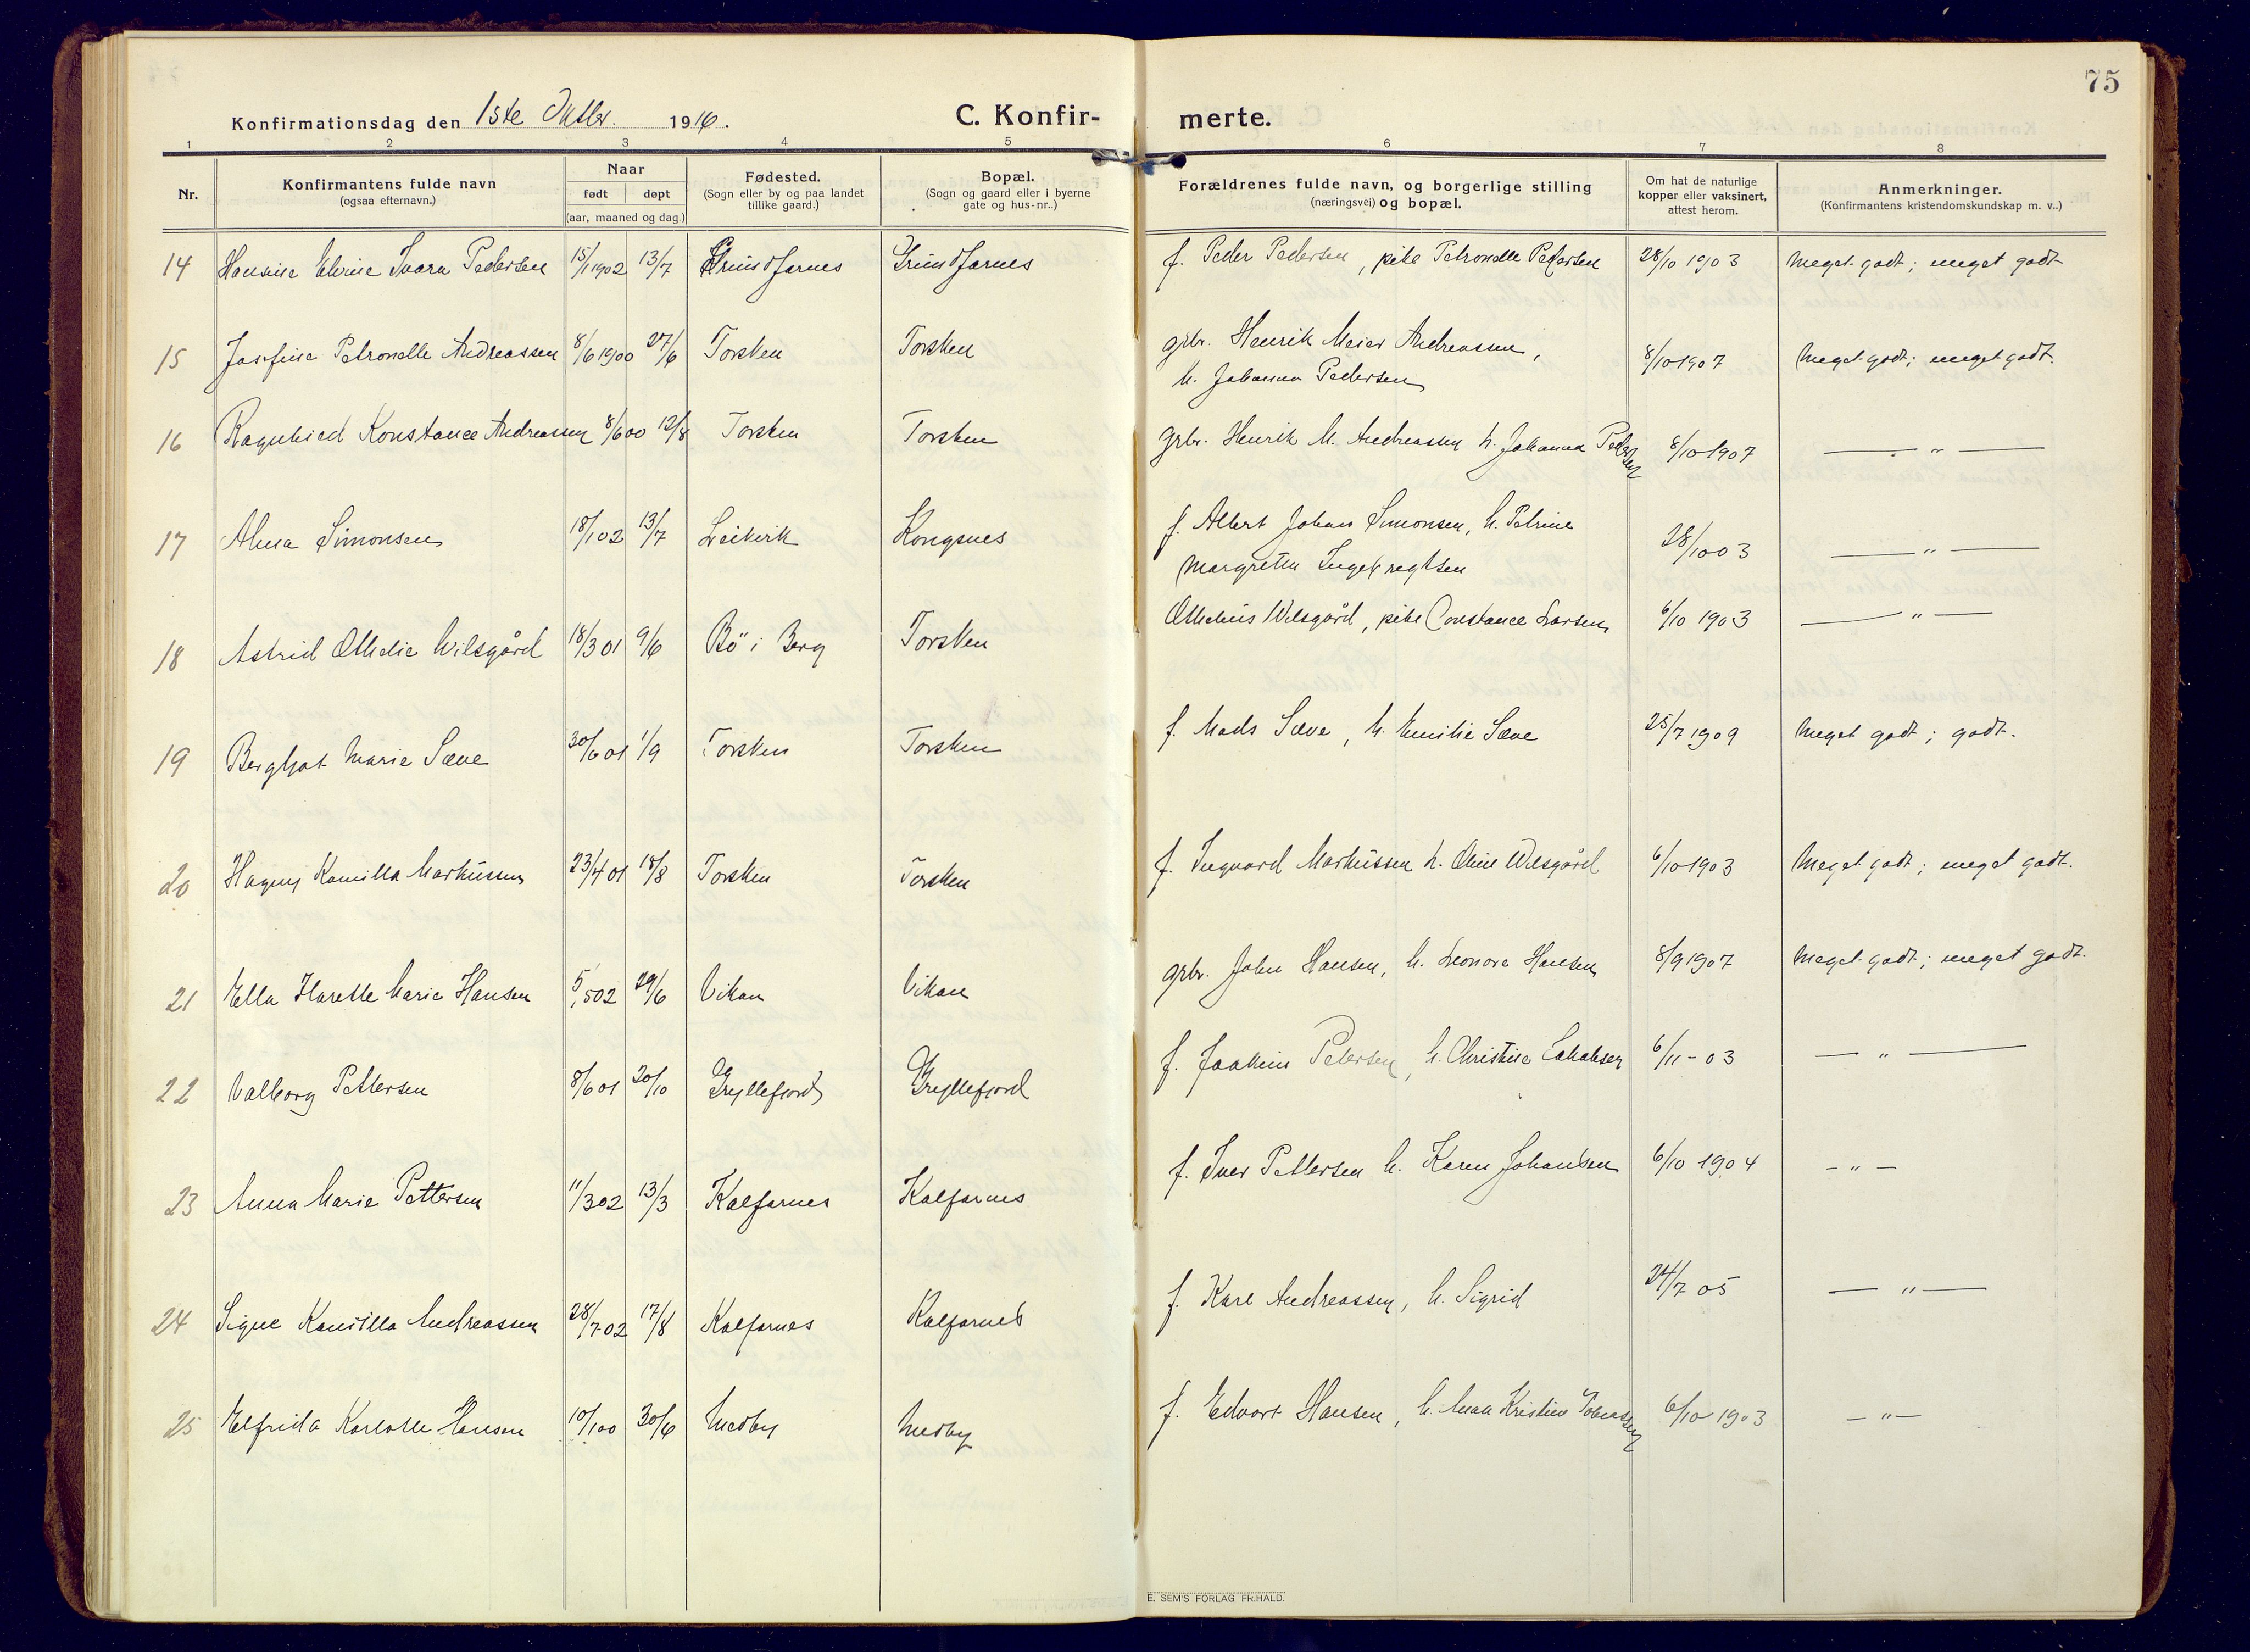 75
Konfirmationsdag den 1ste Oktbr. 1916.
C. Konfir- merte.
1 2 3 4 5 6 7 8
Nr.
Konfirmantens fulde navn
(ogsaa efternavn.)
Naar
født døpt
(aar, maaned og dag.)
Fødested.
(Sogn eller by og paa landet
tillike gaard.)
Bopæl.
(Sogn og gaard eller i byerne
gate og hus-nr..)
Forældrenes fulde navn, og borgerlige stilling
(næringsvei) og bopæl.
Om hat de naturlige
kopper eller vaksinert,
attest herom.
Anmerkninger.
(Konfirmantens kristendomskundskap m. v..)
14 Hansine Elvine Svara Pedersen 15/1 1902 13/7 Grundfarnes Grundfarnes f. Peder Pedersen, pike Petronelle Pedersen 28/10 1903 Meget godt; meget godt
15 Josefine Petronelle Andreassen 8/6 1900 27/6 Torsken Torsken grbr. Henrik Meier Andreassen, 8/10 1907 Meget godt; meget godt.
h. Johanna Pedersen
16 Ragnhild Konstance Andreassen 8/6 00 12/8 Torsken Torsken grbr. Henrik M. Andreassen h. Johanna Pedersen 8/10 1907 — " —
17 Alma Simonsen 18/1 02 13/7 Leikvik Kongsnes f. Albert Johan Simonsen, h. Petrine 28/10 03 — " —
Margretha Ingebregtsen
18 Astrid Othelie Wilsgård 18/3 01 9/6 Bö i Berg Torsken Othelius Wilsgård, pike Constance Larsen 6/10 1903 — " —
19 Bergljot Marie Sæve 30/6 01 1/9 Torsken Torsken f. Mads Sæve, h. Emilie Sæve 25/7 1909 Meget godt; godt.
20 Hagny Kamilla Markussen 23/4 01 18/8 Torsken Torsken f. Ingvard Markussen h. Oline Wilsgård 6/10 1903 Meget godt; meget godt.
21 Ella Harelle Marie Hansen 5/5 02 29/6 Vikan Vikan grbr. John Hansen, h. Leonore Hansen 8/9 1907 Meget godt; meget godt.
22 Valborg Pettersen 8/6 01 20/10 Gryllefjord Gryllefjord f. Joakim Petersen, h. Christine Jakobsen 6/11 - 03 — " —
23 Anna Marie Pettersen 11/3 02 13/3 Kalfarnes Kalfarnes f. Iver Pettersen h. Karen Johansen 6/10 1904 — " —
24 Signe Kamilla Andreassen 28/7 02 17/8 Kalfarnes Kalfarnes f. Karl Andreassen, h. Sigrid 24/7 05 — " —
25 Elfrida Karlotte Hansen 10/1 00 30/6 Medby Medby f. Edvart Hansen, h. Kristine 6/10 1903 — " —
E. SEM'S FORLAG FR.HALD.